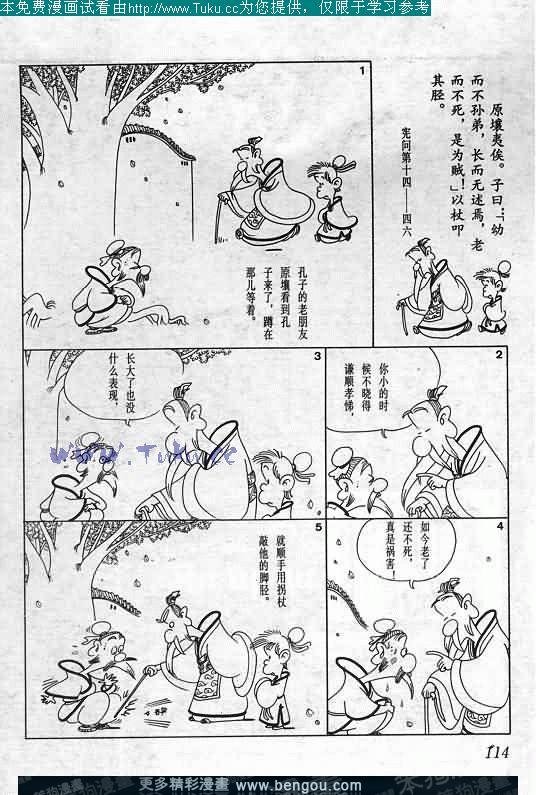 本免费漫画试看由http://www.Tuku.cc为您提供，仅限于学习参考
原壤夷俟。子曰：「幼
而不孙弟，长而无述焉，老
而不死，是为贼！」以杖叩
其胫。
宪问第十四——四六
1
孔子的老朋友
原壤看到孔
子来了，蹲在
那儿等着。
2
你小的时
候不晓得
谦顺孝悌，
3
长大了也没
什么表现，
www.Tuku.cc
4
如今老了
还不死，
真是祸害！
5
就顺手用拐杖
敲他的脚胫。
114
更多精彩漫畫 www.bengou.com